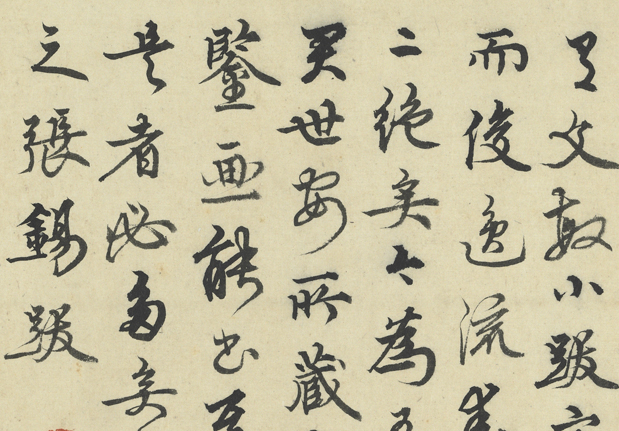 文敏小跋
而俊逸流
二絕矣今為
君世安所藏
鑒画能書
是者必多矣
之張錫跋